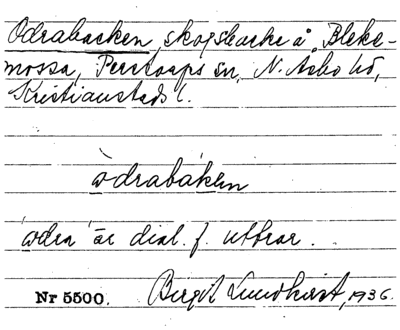 Odrabacken, skogsbacke å Bleke-
mossa, Perstorps sn, N. Åsbo hd,
Kristianstads l.
òdrabáken
òdra är dial. f. uttrar.
Nr 5500. Birgit Lundkvist, 1936.